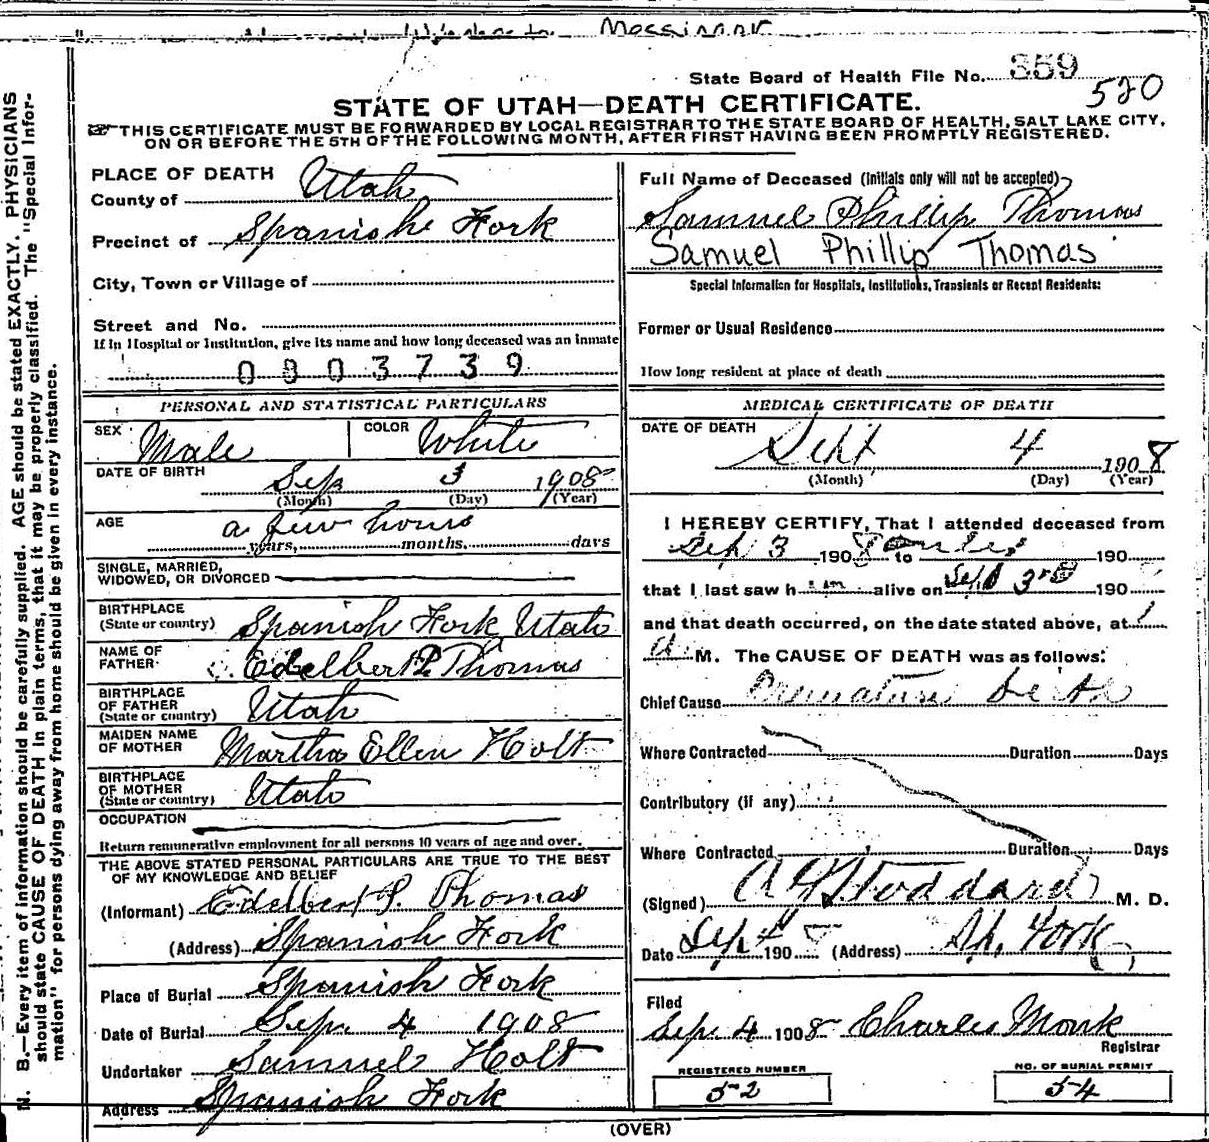 Messinor
State Board of Health File No. 359
520
STATE OF UTAH—DEATH CERTIFICATE.
THIS CERTIFICATE MUST BE FORWARDED BY LOCAL REGISTRAR TO THE STATE BOARD OF HEALTH, SALT LAKE CITY,
ON OR BEFORE THE 5TH OF THE FOLLOWING MONTH, AFTER FIRST HAVING BEEN PROMPTLY REGISTERED.
N. B.—Every item of information should be carefully supplied. AGE should be stated EXACTLY. PHYSICIANS
should state CAUSE OF DEATH in plain terms, that it may be properly classified. The "Special Infor-
mation" for persons dying away from home should be given in every instance.
PLACE OF DEATH
County of Utah
Precinct of Spanish Fork
City, Town or Village of
Street and No.
If in Hospital or Institution, give its name and how long deceased was an inmate
0803739
PERSONAL AND STATISTICAL PARTICULARS
SEX Male COLOR White
DATE OF BIRTH Sep 3 1908
(Month) (Day) (Year)
AGE a few hours
years, months, days
SINGLE, MARRIED,
WIDOWED, OR DIVORCED
BIRTHPLACE
(State or country) Spanish Fork Utah
NAME OF
FATHER Edelbert P. Thomas
BIRTHPLACE
OF FATHER
(State or country) Utah
MAIDEN NAME
OF MOTHER Martha Ellen Holt
BIRTHPLACE
OF MOTHER
(State or country) Utah
OCCUPATION
Return remunerative employment for all persons 10 years of age and over.
THE ABOVE STATED PERSONAL PARTICULARS ARE TRUE TO THE BEST
OF MY KNOWLEDGE AND BELIEF
(Informant) Edelbert P. Thomas
(Address) Spanish Fork
Place of Burial Spanish Fork
Date of Burial Sep. 4 1908
Undertaker Samuel Holt
Address Spanish Fork
Full Name of Deceased (Initials only will not be accepted)
Samuel Phillip Thomas
Samuel Phillip Thomas
Special Information for Hospitals, Institutions, Transients or Recent Residents:
Former or Usual Residence
How long resident at place of death
MEDICAL CERTIFICATE OF DEATH
DATE OF DEATH Sept, 4 1908
(Month) (Day) (Year)
I HEREBY CERTIFY, That I attended deceased from
Sep 3 1908 to 190
that I last saw him alive on Sept 3rd 190
and that death occurred, on the date stated above, at 1
A. M. The CAUSE OF DEATH was as follows:
Chief Cause Premature birth
Where Contracted Duration Days
Contributory (if any)
Where Contracted Duration Days
(Signed) A G Stoddard M. D.
Date Sep 4 1908 (Address) Sp. Fork
Filed
Sep. 4 1908 Charles Monk
Registrar
REGISTERED NUMBER
52
NO. OF BURIAL PERMIT
54
(OVER)